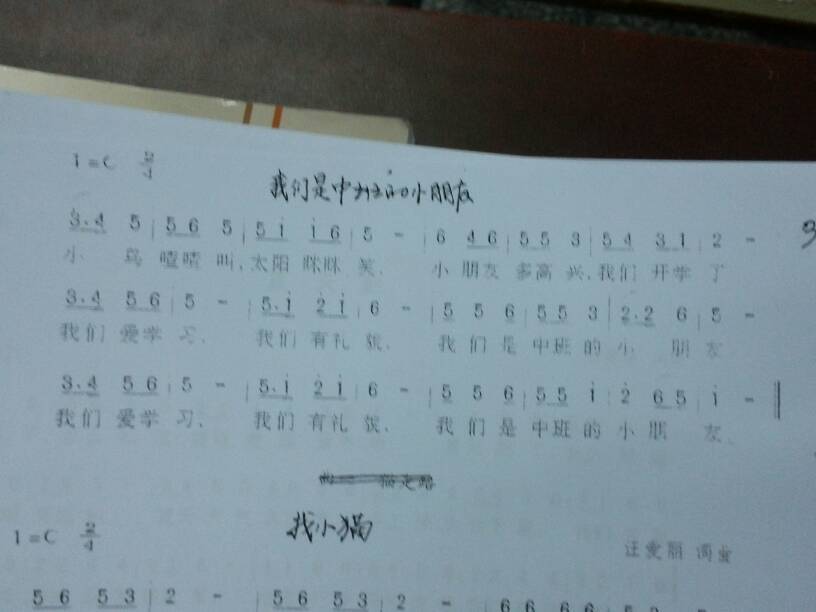 1=C 2/4
我们是中班的小朋友
3.4 5 | 56 5 | 5i̇ i̇6 | 5 - | 6 46 | 55 3 | 54 31 | 2 -
小 鸟 喳喳 叫,太阳 咪咪 笑. 小 朋友 多高 兴,我们 开学 了
3.4 56 | 5 - | 5.i̇ 2̇i̇ | 6 - | 5 5 6 | 55 3 | 2.2 6 | 5 -
我们 爱学 习, 我们 有礼 貌, 我 们 是 中班 的 小 朋 友
3.4 56 | 5 - | 5.i̇ 2̇i̇ | 6 - | 5 5 6 | 55 i̇ | 2̇ 65 | i̇ - ‖
我们 爱学 习, 我们 有礼 貌, 我 们 是 中班 的 小 朋 友.
猫走路
找小猫
1=C 2/4
汪爱丽 词曲
56 53 | 2 - | 56 53 | 2 -